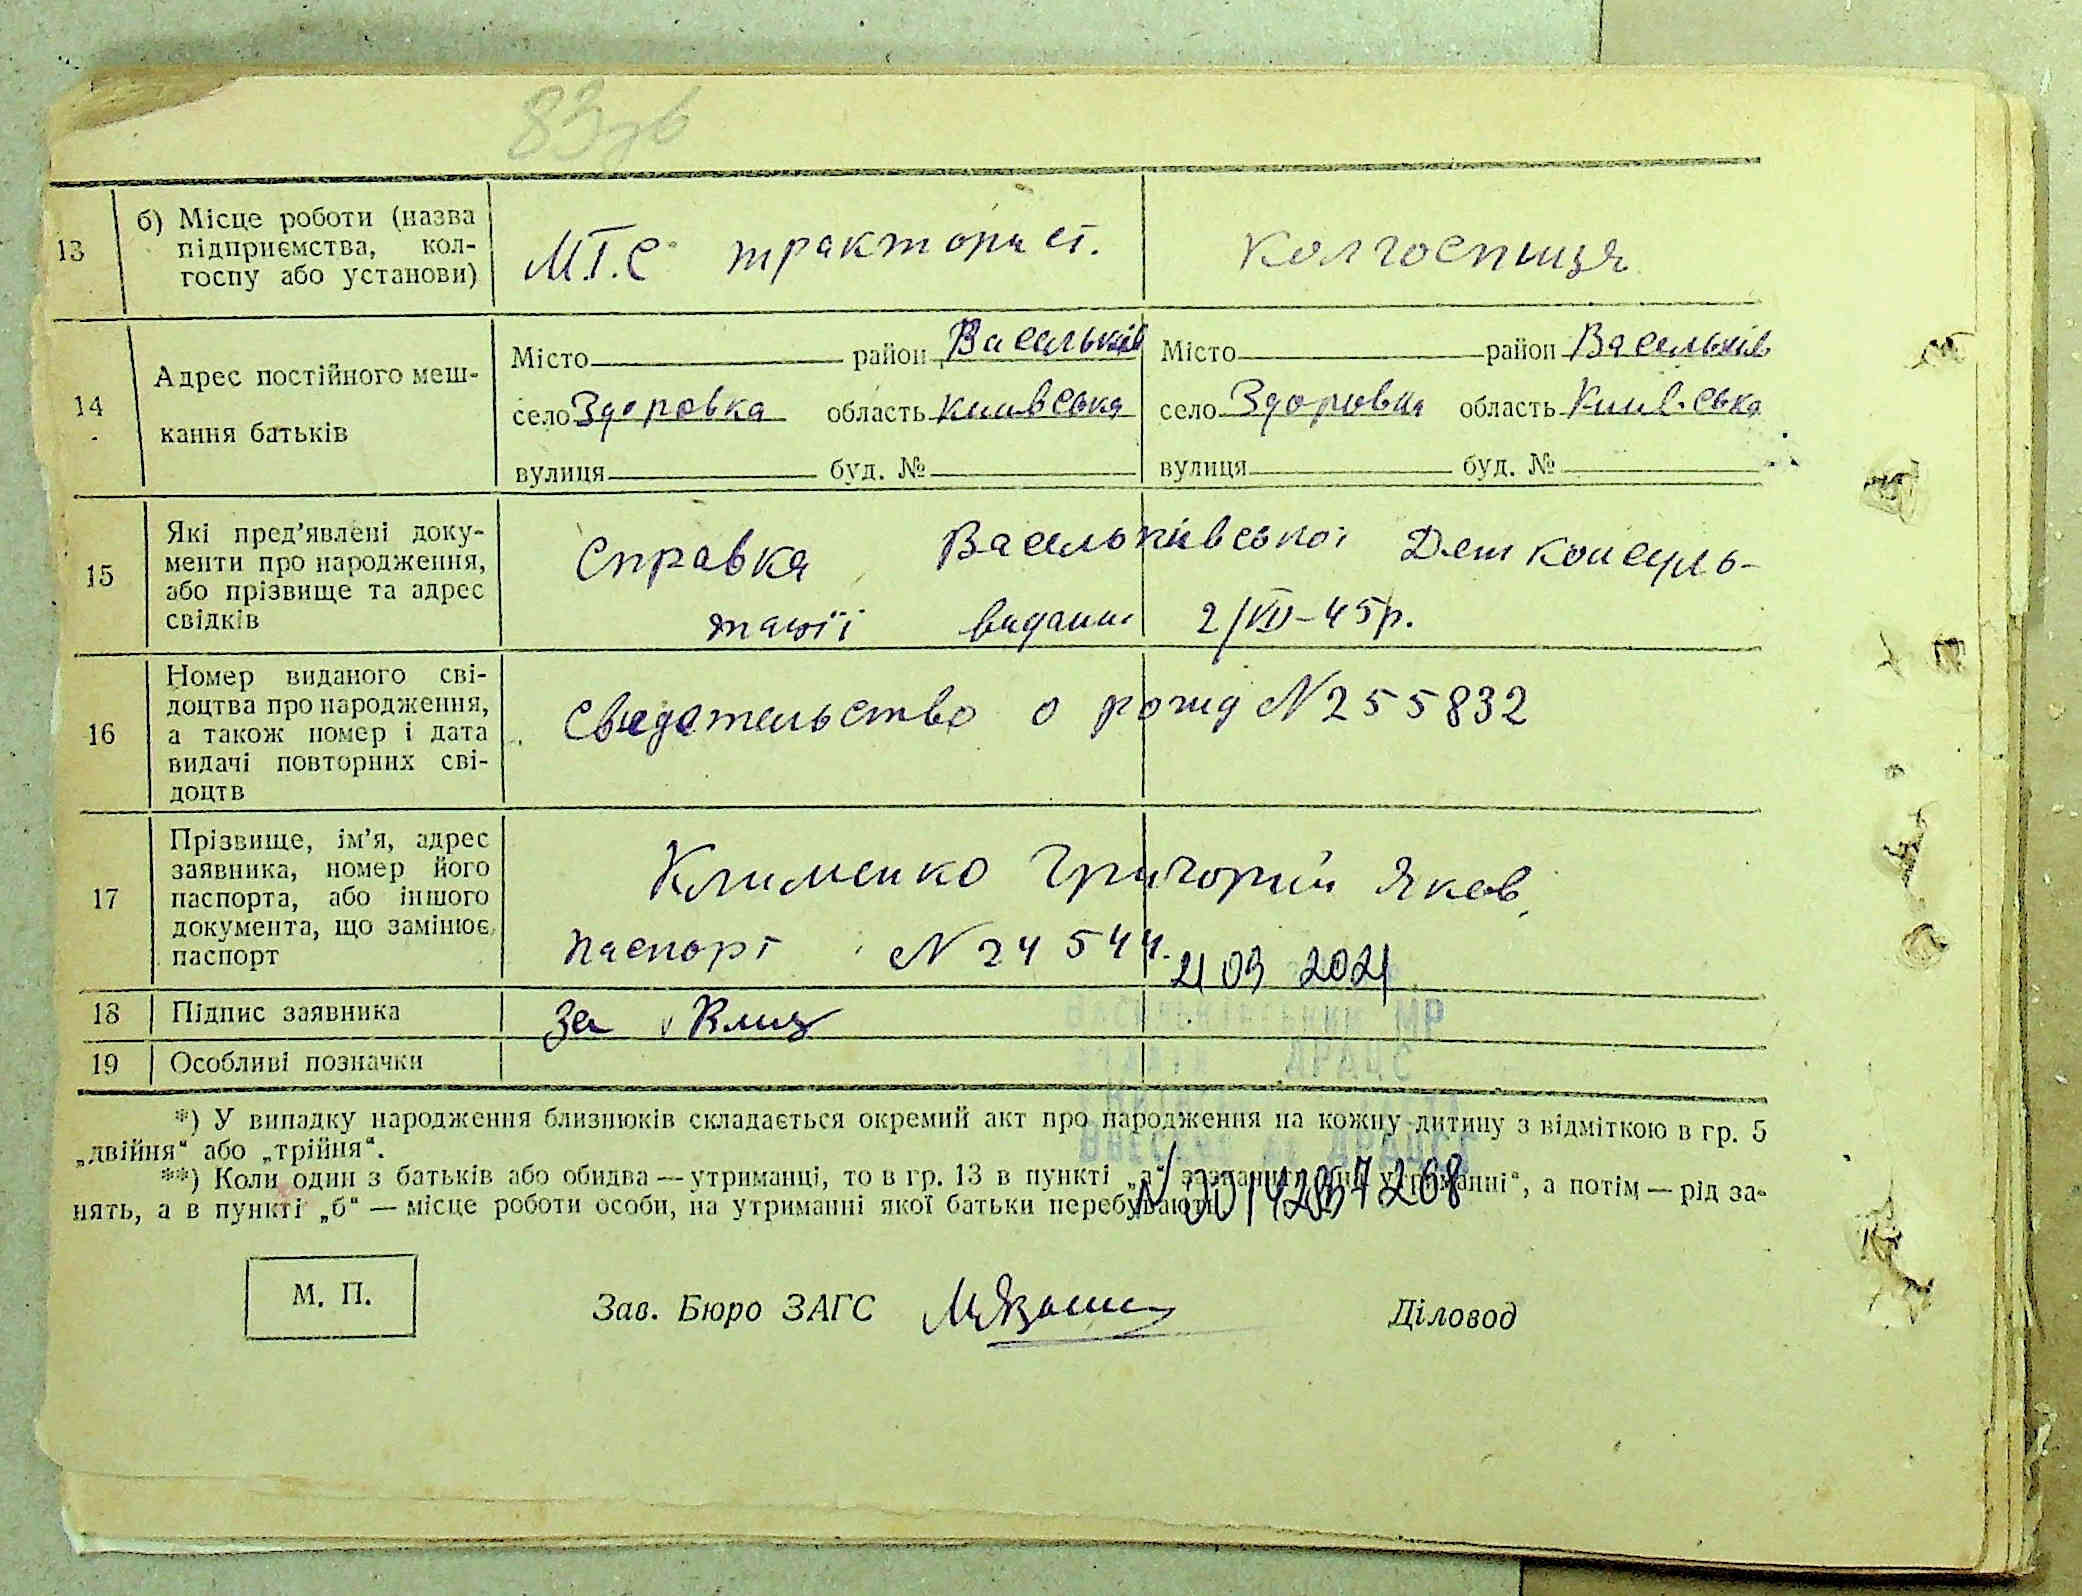 83зв
13 б) Місце роботи (назва підприємства, кол-госпу або установи) М.Т.С тракторист. колгоспниця
14 Адрес постійного меш-кання батьків
Місто район Васильків Місто район Васильків
село Здоровка область Київська село Здоровка область Київська
вулиця буд. № вулиця буд. №
15 Які пред'явлені доку-
менти про народження,
або прізвище та адрес
свідків
Справка Васильківської Дет консуль-
тації видана 2/VII-45р.
16 Номер виданого сві-
доцтва про народження,
а також номер і дата
видачі повторних сві-
доцтв
Свидетельство о рожд N 255832
17 Прізвище, ім'я, адрес
заявника, номер його
паспорта, або іншого
документа, що замінює
паспорт
Клименко Григорий Яков.
паспорт N 24544.
21 09 2021
18 Підпис заявника За Клим
19 Особливі позначки
МР
ДРАЦС
*) У випадку народження близнюків складається окремий акт про народження на кожну дитину з відміткою в гр. 5
„двійня“ або „трійня“.
**) Коли один з батьків або обидва — утриманці, то в гр. 13 в пункті „а“ зазначити утриманні“, а потім — рід за-
нять, а в пункті „б“ — місце роботи особи, на утриманні якої батьки перебувають
N 00142857268
М. П.
Зав. Бюро ЗАГС Діловод